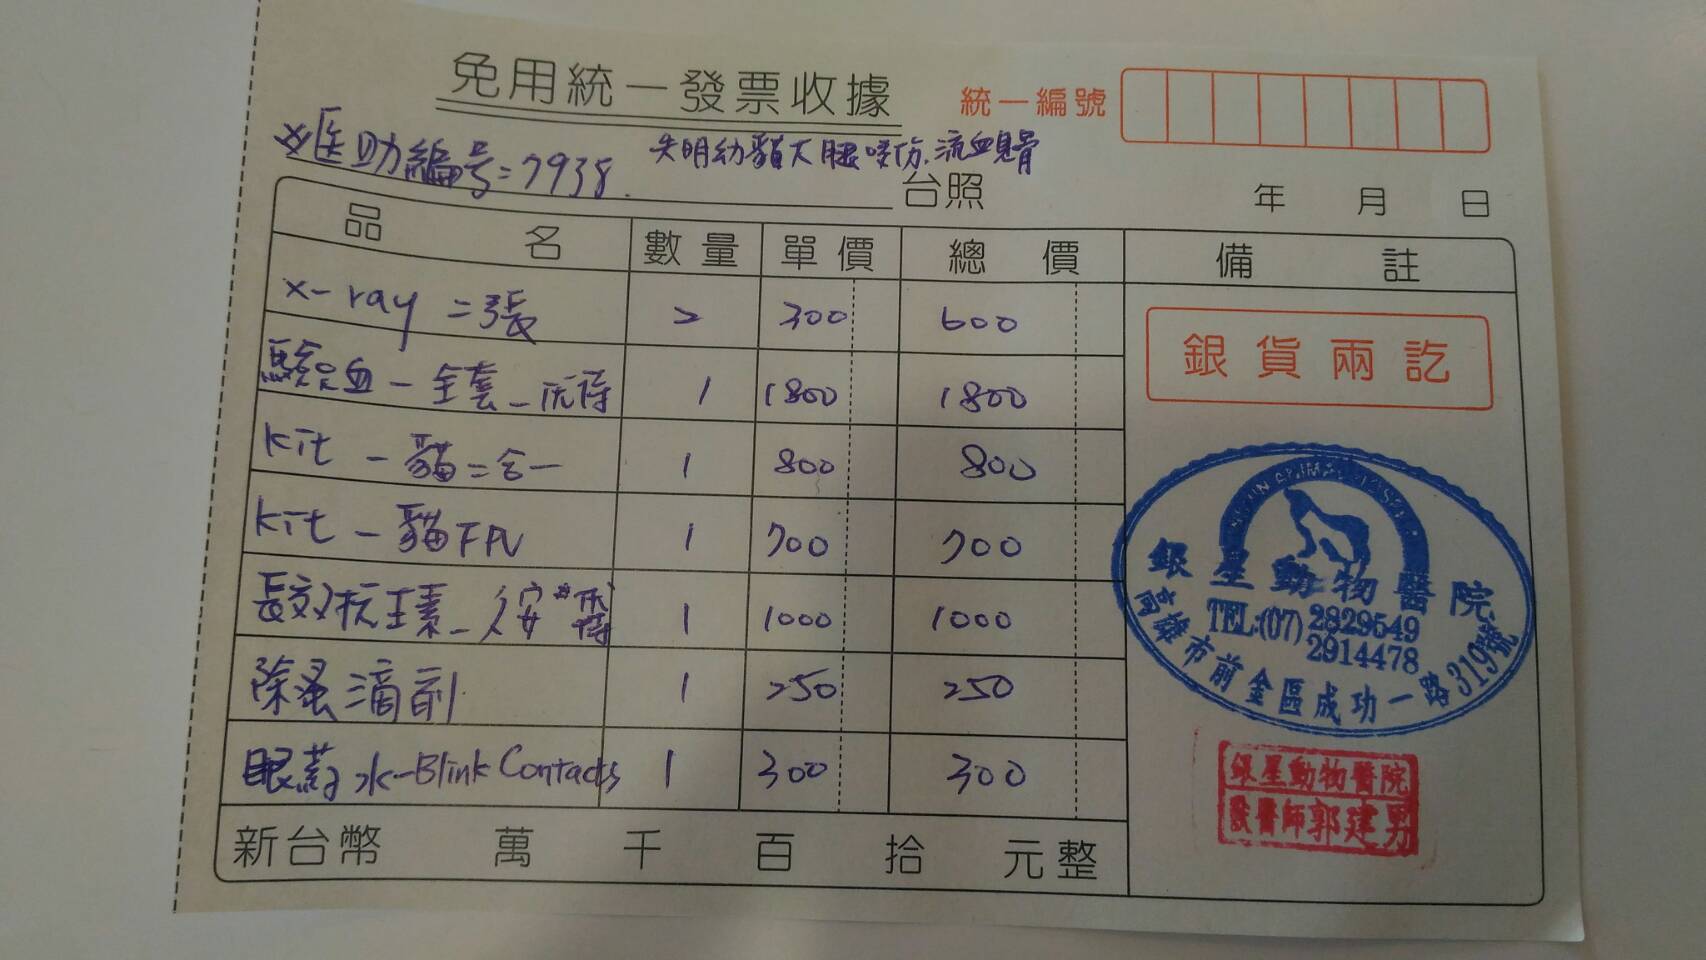 免用統一發票收據
統一編號
※医助編号=7938.
失明幼貓大腿咬伤.流血見骨
台照
年 月 日
品 名 數量 單價 總價 備註
x-ray 二張 2 300 600
驗血-全套-优待 1 1800 1800
銀貨兩訖
kit - 貓二合一 1 800 800
kit - 貓FPV 1 700 700
長效抗生素- 1 1000 1000
除蚤滴劑 1 250 250
眼葯水-Blink Contacts 1 300 300
新台幣 萬 千 百 拾 元整
銀星動物醫院
TEL:(07) 2829549
2914478
高雄市前金區成功一路319號
銀星動物醫院
獸醫師郭建男